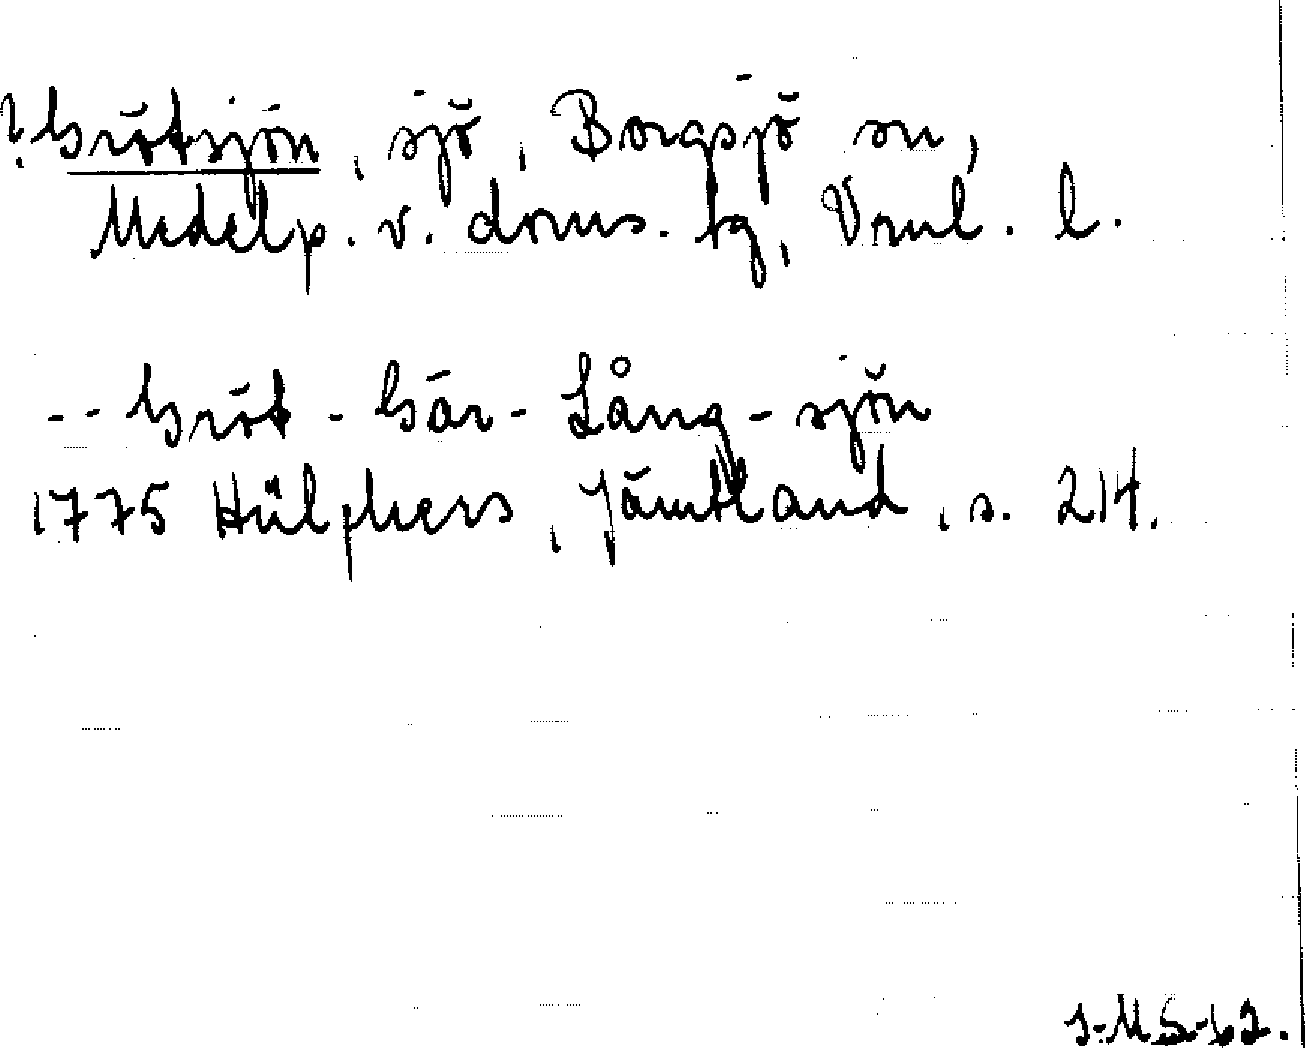 ? Grötsjön, sjö, Borgsjö sn,
Medelp. v. doms. tg, Vrnl. l.
-- Gröt - Gär - Lång - sjön
1775 Hülphers, Jämtland, s. 214.